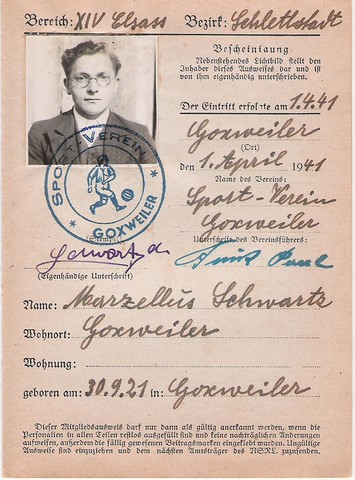 Bereich: XIV Elsass Bezirk: Schlettstadt
Bescheinigung
Nebenstehendes Lichtbild stellt den
Inhaber dieses Ausweises dar und ist
von ihm eigenhändig unterschrieben.
Der Eintritt erfolgte am 1.4.41
Goxweiler
(Ort)
den 1. April 1941
Name des Vereins:
Sport-Verein
Goxweiler
Unterschrift des Vereinsführers:
Paul
SPORT-VEREIN
* GOXWEILER *
(Stempel)
Schwartz
(Eigenhändige Unterschrift)
Name: Marzellus Schwartz
Wohnort: Goxweiler
Wohnung:
geboren am: 30.9.21 in: Goxweiler
Dieser Mitgliedsausweis darf nur dann als gültig anerkannt werden, wenn die
Personalien in allen Teilen restlos ausgefüllt sind und keine nachträglichen Änderungen
aufweisen, außerdem die fällig gewesenen Beitragsmarken eingeklebt wurden. Ungültige
Ausweise sind einzuziehen und dem nächsten Amtsträger des NSRL. zuzusenden.